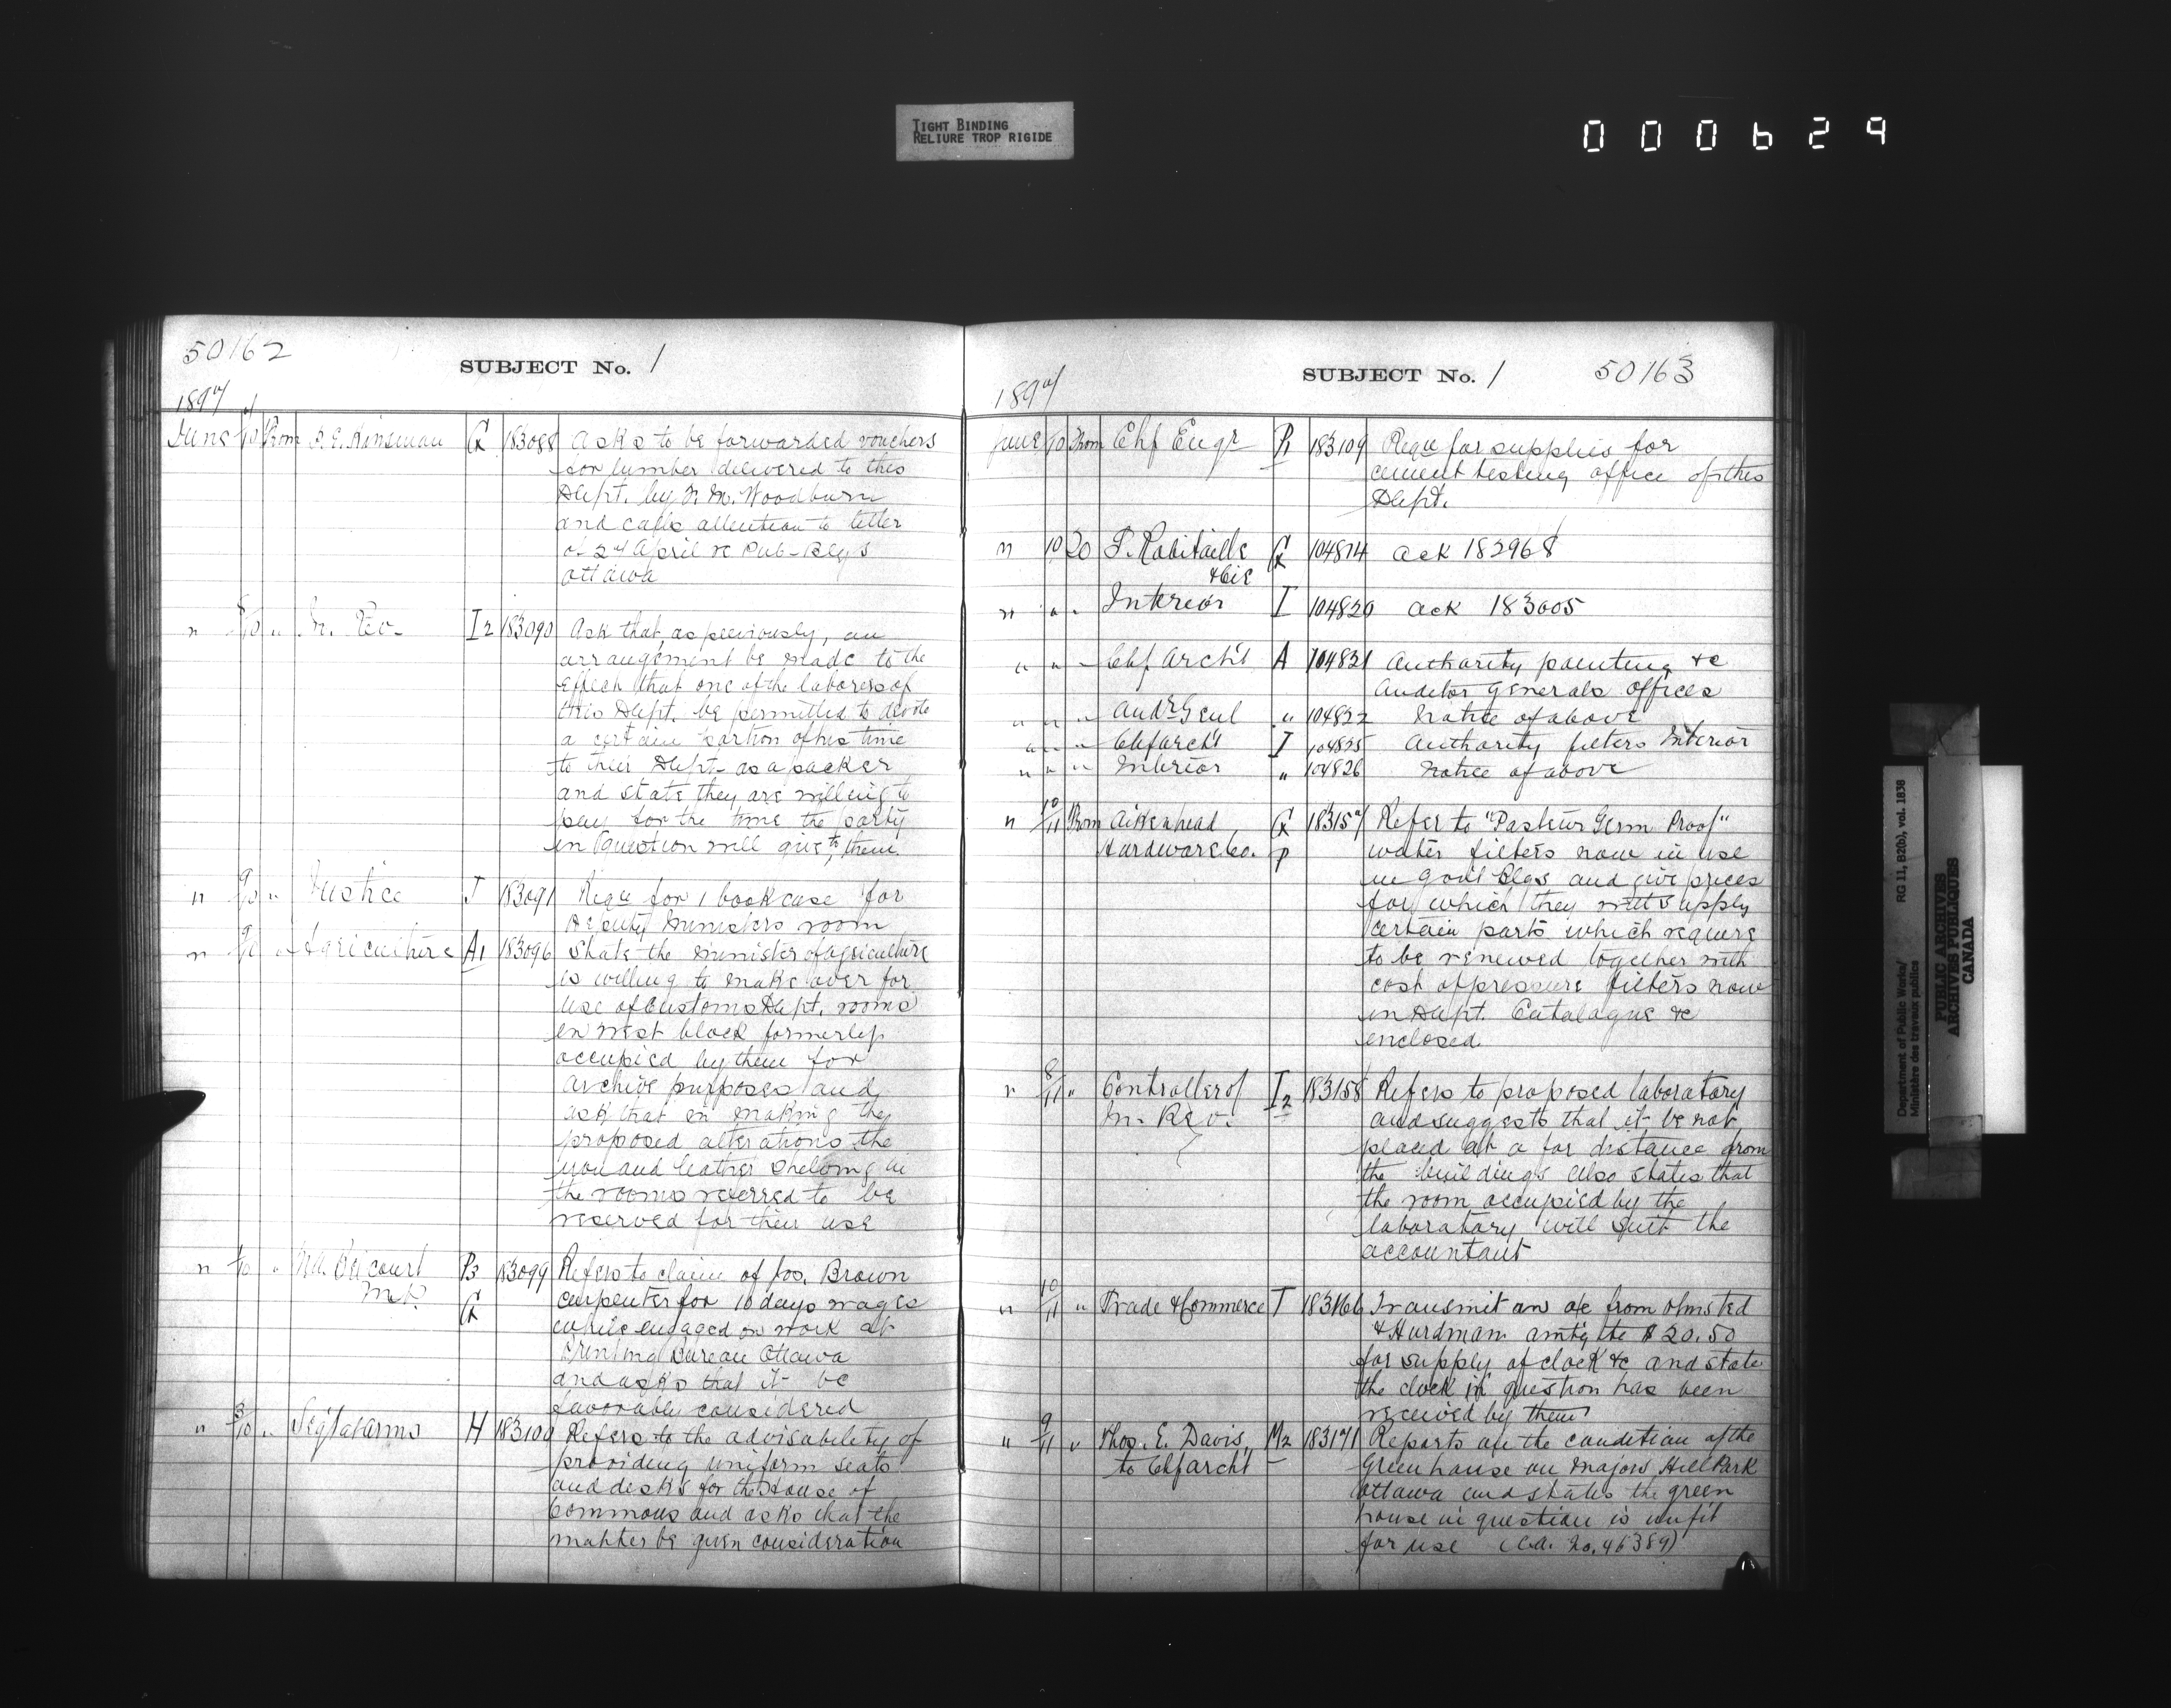 TIGHT BINDING
RELIURE TROP RIGIDE
000629
50162
SUBJECT No. 1
1897
June 7/10 From F. E. Kinsman G 183088 Asks to be forwarded vouchers
for lumber delivered to this
Dept. by Woodburn
and calls attention to letter
of April re Pub-Blgs
Ottawa
" 8/10 " In. Rev. I2 183090 Ask that, as previously, an
arrangement be made to the
effect that one of the laborers of
this Dept. be permitted to devote
a certain portion of his time
to their Dept. as a packer
and state they are willing to
pay for the time the party
in question will give to them
" 9/10 " Justice J 183091 Requ for 1 bookcase for
Deputy Ministers room
" 9/10 " Agriculture A1 183096 State the Minister of Agriculture
is willing to make over for
use of Customs Dept. rooms
in West block formerly
occupied by them for
archive purposes and
ask that in making the
proposed alterations the
iron and leather shelving in
the rooms referred to be
reserved for their use
" /10 " Belcourt P3 183099 Refers to claim of Jos. Brown
M.P. G carpenter for 10 days wages
while engaged on work at
Printing Bureau Ottawa
and asks that it be
favorable considered
" 8/10 " Sergt at arms H 183100 Refers to the advisability of
providing uniform seats
and desks for the House of
Commons and asks that the
matter be given consideration
SUBJECT No. 1
50163
1897
June 10 From Chf Engr P1 183109 Requ for supplies for
cement testing office of this
Dept.
" 10 20 F. Robitaille G 104814 Ack 182968
& Cie
" " " Interior I 104820 Ack 183005
" " " Chf Archt A 104821 Authority painting &c
Auditor Generals offices
" " " Audr Genl " 104822 Notice of above
" " " Chf Archt I 104825 Authority filters Interior
" " " Interior " 104826 Notice of above
" 10/11 From Aikenhead G 183157 Refer to "Pasteur Germ Proof"
Hardware Co. P water filters now in use
in Govt Blgs and give prices
for which they will supply
certain parts which require
to be renewed together with
cost of pressure filters now
in Dept. Catalogue &c
enclosed
" 8/11 " Controller of I2 183158 Refers to proposed laboratory
In. Rev. and suggests that it be not
placed at a far distance from
the buildings also states that
the room occupied by the
laboratory will suit the
accountant
" 10/11 " Trade & Commerce T 183166 Transmit an a/c from Olmsted
& Hurdman amtg to $20.50
for supply of clock &c and state
the clock in question has been
received by them
" 9/11 " Thos. E. Davis M2 183171 Reports on the condition of the
to Chf archt Green house on Majors Hill Park
Ottawa and states the green
house in question is unfit
for use (C.A. No. 46389)
Department of Public Works/
Ministère des travaux publics
RG 11, B2(b), vol. 1838
PUBLIC ARCHIVES
ARCHIVES PUBLIQUES
CANADA